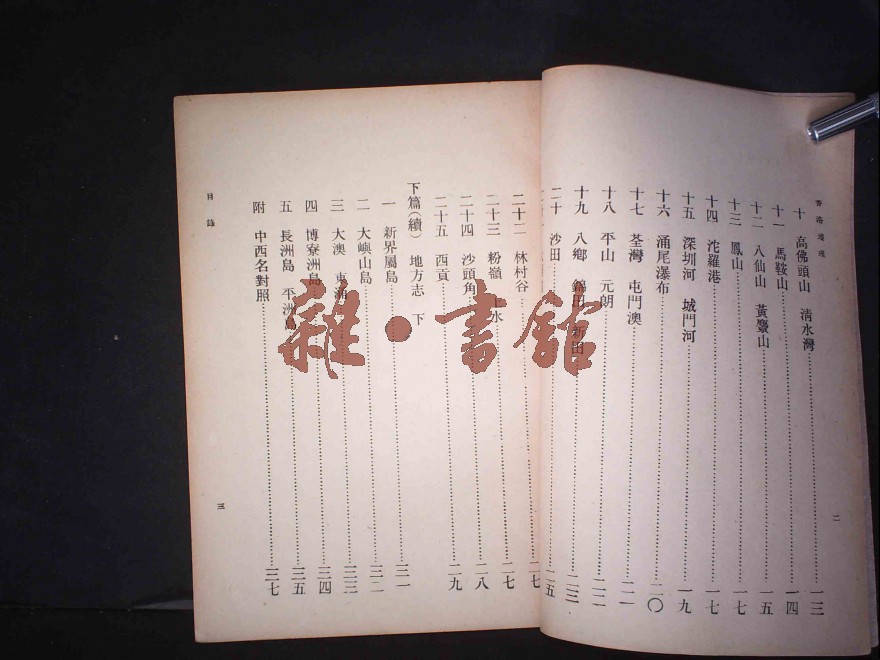 香港地理
十 高佛頭山 清水灣……一三
十一 馬鞍山……一四
十二 八仙山 黃嶺山……一五
十三 鳳山……一七
十四 沱羅港……一七
十五 深圳河 城門河……一九
十六 涌尾瀑布……二〇
十七 荃灣 屯門澳……二一
十八 平山 元朗……二二
十九 八鄉 錦田 新田……二三
二十 沙田……二五
二
二十二 林村谷……二七
二十三 粉嶺 上水……二七
二十四 沙頭角……二八
二十五 西貢……二九
下篇(續) 地方志 下
一 新界屬島……三一
二 大嶼山島……三二
三 大澳 東涌……三三
四 博寮洲島……三四
五 長洲島 平洲島……三五
附 中西名對照……三七
目錄
三
雜·書館